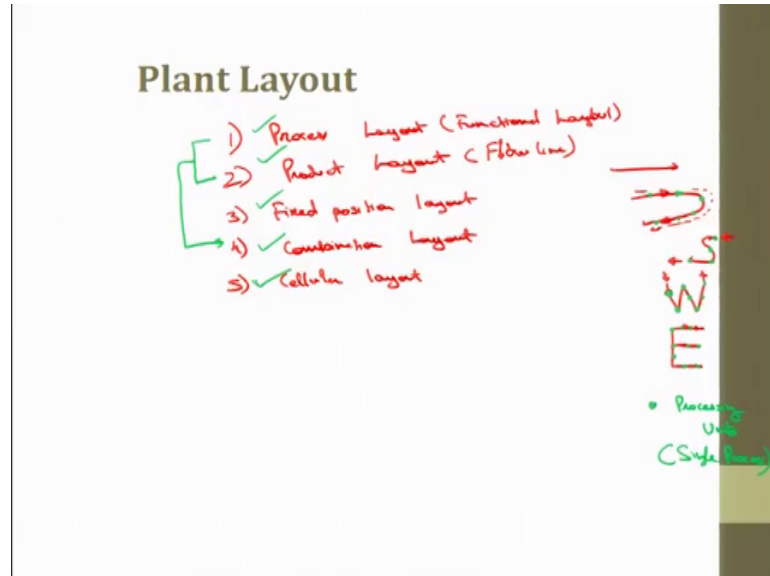 Plant Layout
1) Process Layout (Functional Layout)
2) Product Layout (Flow line)
3) Fixed position layout
4) Combination Layout
5) Cellular layout
S
W
E
• Processing
Units
(Single Process)